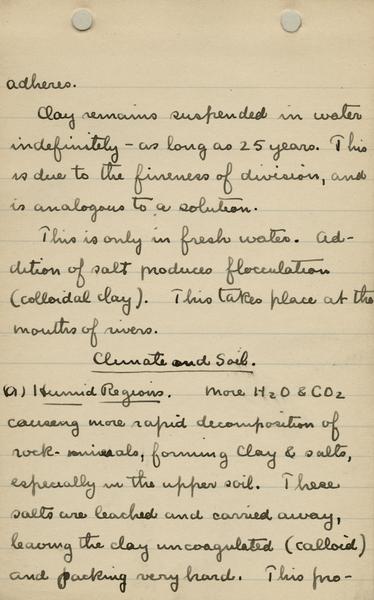 adheres.
Clay remains suspended in water
indefinitely - as long as 25 years. This
is due to the fineness of division, and
is analogous to a solution.
This is only in fresh water. Ad-
dition of salt produces flocculation
(colloidal clay). This takes place at the
mouths of rivers.
Climate and Soil.
(a) Humid Regions. More H2O & CO2
causeng more rapid decomposition of
rock-minerals, forming Clay & salts,
especially in the upper soil. These
salts are leached and carried away,
leaving the clay uncoagulated (calloid)
and packing very hard. This pro-